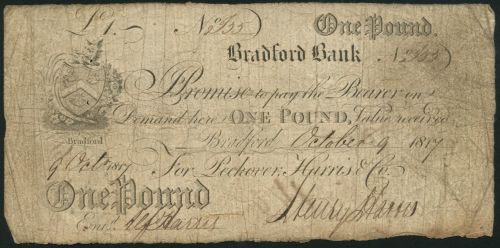 £1. No One Pound.
Bradford Bank No
I Promise to pay the Bearer on
Demand here ONE POUND, Value received
Bradford
Bradford October 9 1817
9 Oct 1817 For Peckover, Harris & Co.
One Pound
Entd. Harris Henry Harris